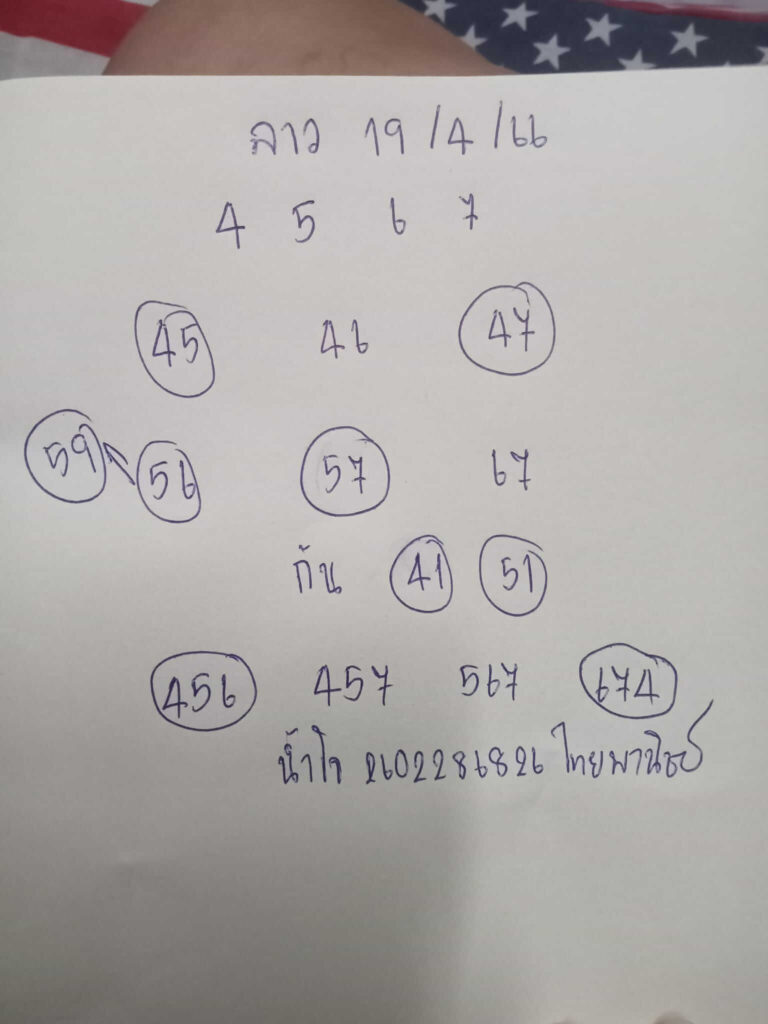 ลาว 19/4/66
4 5 6 7
45 46 47
59 56 57 67
กัน 41 51
456 457 567 674
น้ำใจ 2602286826 ไทยพานิชย์